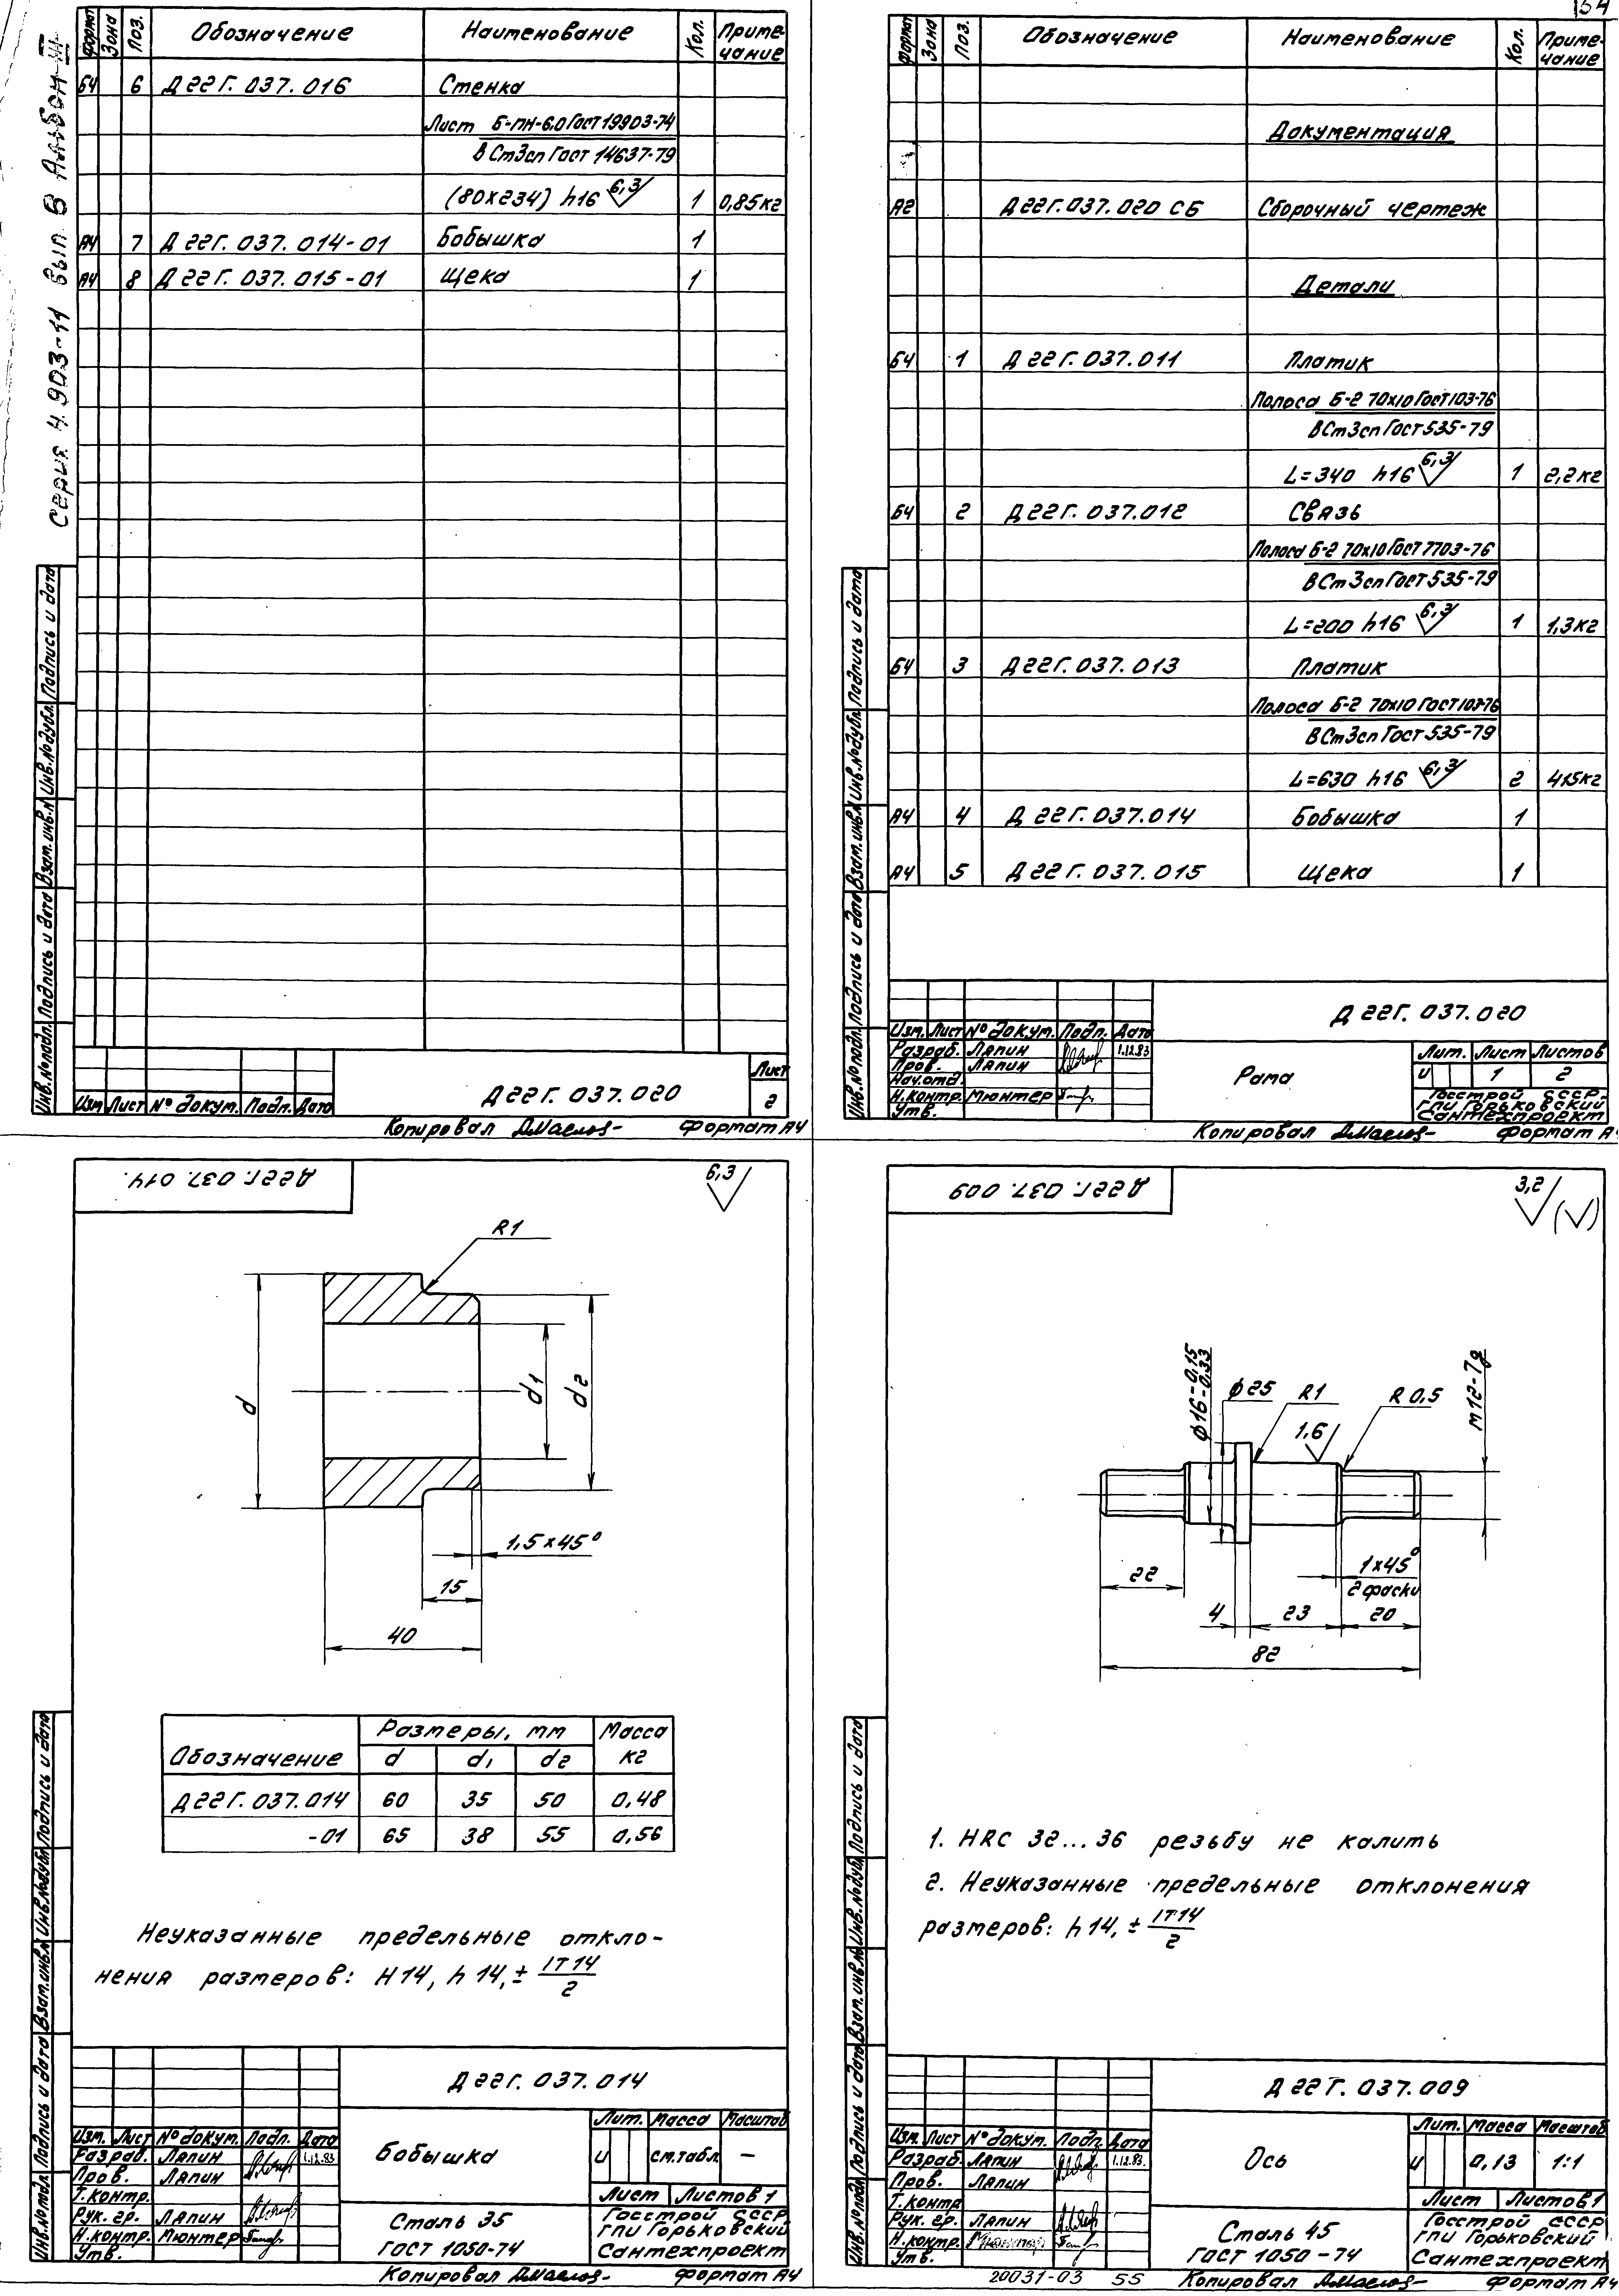 Серия 4.903-11 вып. В Альбом III
Формат Зона Поз. Обозначение Наименование Кол. Приме-
чание
БЧ 6 Д22Г.037.016 Стенка
Лист Б-ПН-6.0 Гост 19903-74
В Ст3сп Гост 14637-79
(80×234) h16 6,3 1 0,85кг
А4 7 Д22Г.037.014-01 Бобышка 1
А4 8 Д22Г.037.015-01 Щека 1
Инв.№подл. Подпись и дата Взам.инв.№ Инв.№дубл. Подпись и дата
Изм Лист № докум. Подп. Дата
Д22Г.037.020
Лист
2
Копировал Формат А4
Формат Зона Поз. Обозначение Наименование Кол. Приме-
чание
Документация
А2 Д22Г.037.020 СБ Сборочный чертеж
Детали
БЧ 1 Д22Г.037.011 Платик
Полоса Б-2 70×10 Гост 103-76
ВСт3сп Гост 535-79
L=340 h16 6,3 1 2,2кг
БЧ 2 Д22Г.037.012 Связь
Полоса Б-2 70×10 Гост 7703-76
ВСт3сп Гост 535-79
L=200 h16 6,3 1 1,3кг
БЧ 3 Д22Г.037.013 Платик
Полоса Б-2 70×10 Гост 103-76
ВСт3сп Гост 535-79
L=630 h16 6,3 2
А4 4 Д22Г.037.014 Бобышка 1
А4 5 Д22Г.037.015 Щека 1
Инв.№подл. Подпись и дата Взам.инв.№ Инв.№дубл. Подпись и дата
Д22Г.037.020
Изм. Лист № докум. Подп. Дата
Разраб. Ляпин 1.12.83
Пров. Ляпин
Нач.отд.
Н.контр. Мюнтер
Утв.
Рама
Лит. Лист Листов
И 1 2
Госстрой СССР
ГПИ Горьковский
Сантехпроект
Копировал Формат А4
Д22Г.037.014.
6,3
R1
d
d1
d2
1,5×45°
15
40
Обозначение Размеры, мм Масса
кг
d d1 d2
Д22Г.037.014 60 35 50 0,48
-01 65 38 55 0,56
Неуказанные предельные откло-
нения размеров: Н14, h14, ± IT14/2
Инв.№подл. Подпись и дата Взам.инв.№ Инв.№дубл. Подпись и дата
Д22Г.037.014
Изм. Лист № докум. Подп. Дата
Разраб. Ляпин 1.12.83
Пров. Ляпин
Т.контр.
Рук. гр. Ляпин
Н.контр. Мюнтер
Утв.
Бобышка
Лит. Масса Масштаб
И см.табл. —
Лист Листов 1
Сталь 35
ГОСТ 1050-74
Госстрой СССР
ГПИ Горьковский
Сантехпроект
Копировал Формат А4
Д22Г.037.009
3,2
ϕ16 -0,15 -0,33
ϕ25
R1
1,6
R 0,5
М12-7g
22
1×45°
2 фаски
4 23 20
82
1. HRC 32...36 резьбу не калить
2. Неуказанные предельные отклонения
размеров: h14, ± IT14/2
Инв.№подл. Подпись и дата Взам.инв.№ Инв.№дубл. Подпись и дата
Д22Г.037.009
Изм. Лист № докум. Подп. Дата
Разраб. Ляпин 1.12.83.
Пров. Ляпин
Т.контр
Рук. гр. Ляпин
Н.контр.
Утв.
Ось
Лит. Масса Масштаб
И 0,13 1:1
Лист Листов 1
Сталь 45
ГОСТ 1050-74
Госстрой СССР
ГПИ Горьковский
Сантехпроект
20031-03 55 Копировал Формат А4